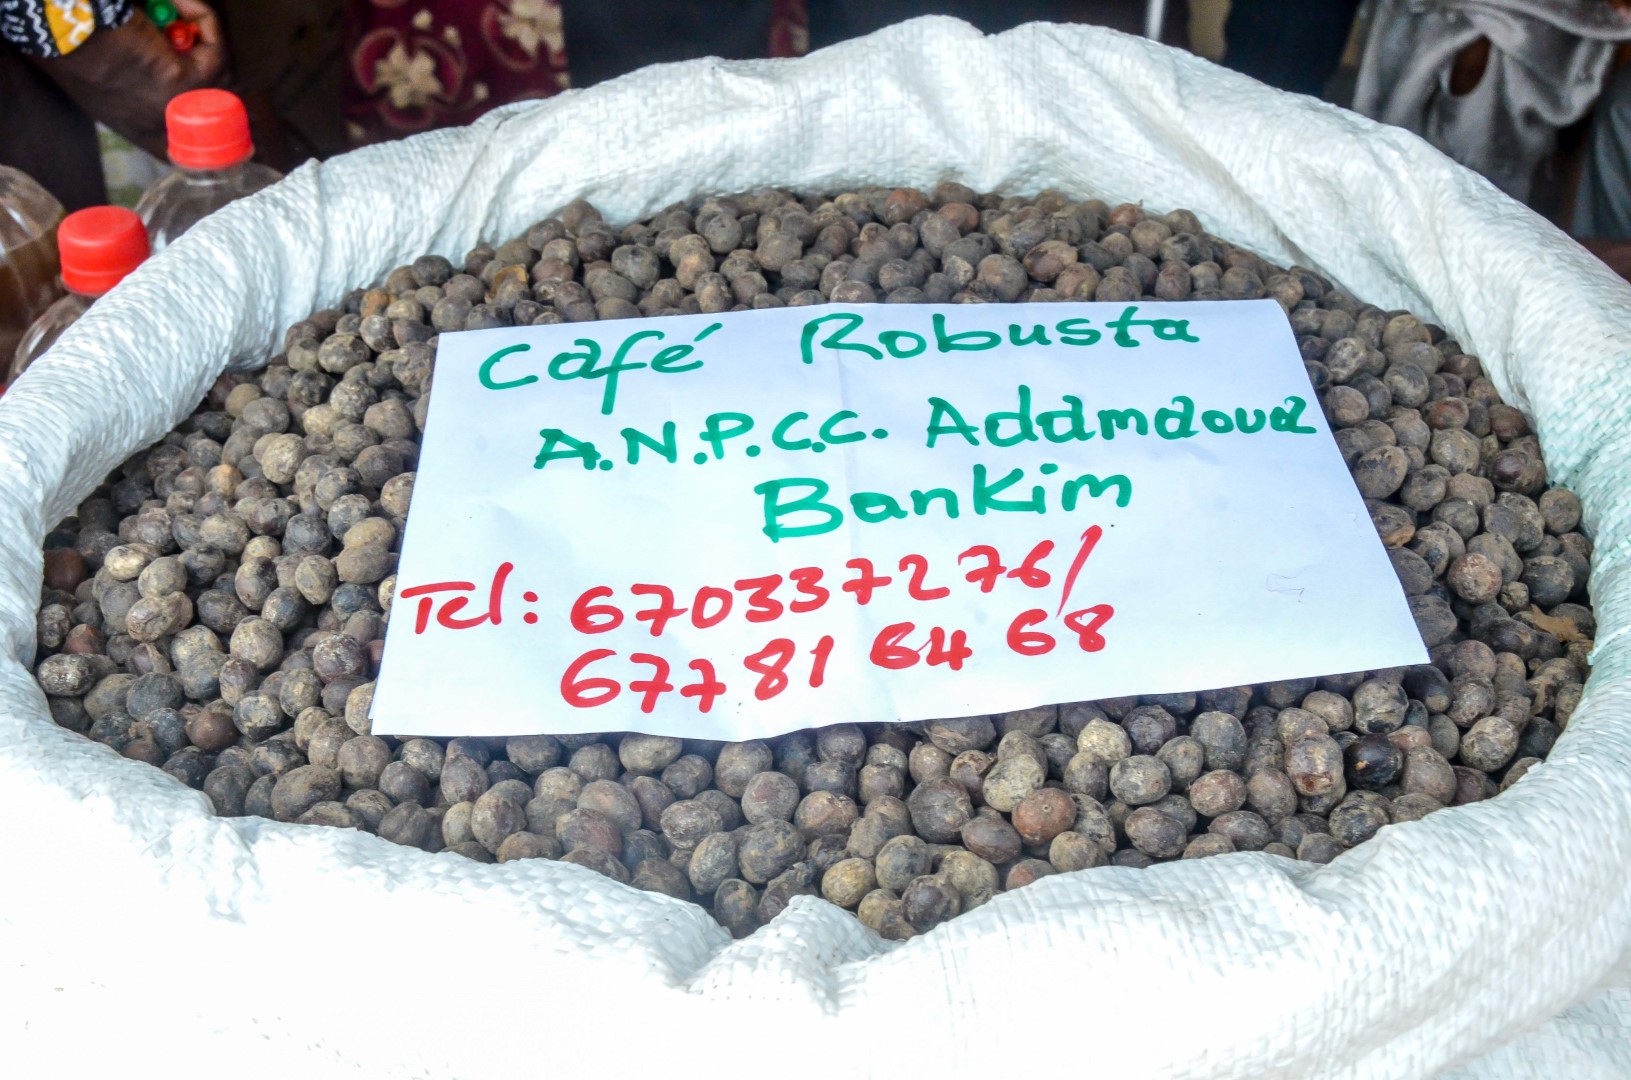 Café Robusta
A.N.P.C.C. Adamaoua
Bankim
Tel: 670337276/
677 81 64 68